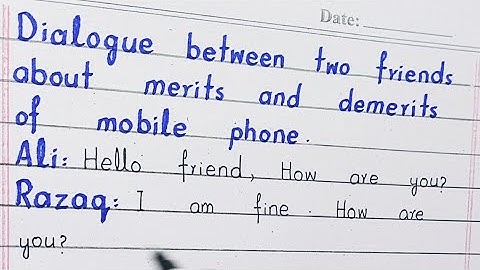 Date:
Dialogue between two friends
about merits and demerits
of mobile phone.
Ali: Hello friend, How are you?
Razaq: I am fine. How are
you?